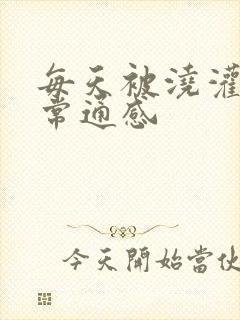 每天被澆灌
常通感
今天開始當伙